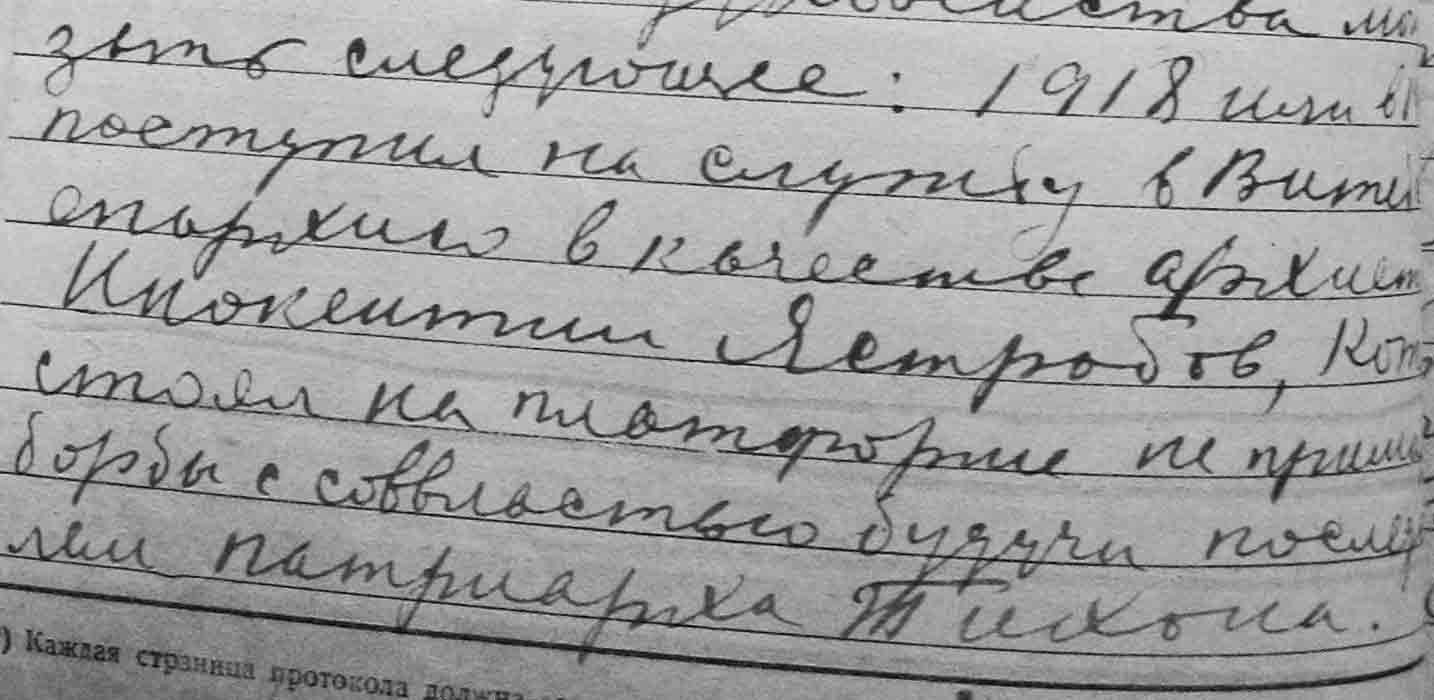 зыть следующее: 1918 или в
поступил на службу в Витеб
епархию в качестве архиеп
Инокентии Ястребов, Кот
стоял на платформе не прими
борбы с соввластью будучи послед
лем патриарха Тихона.
) Каждая страница протокола должна